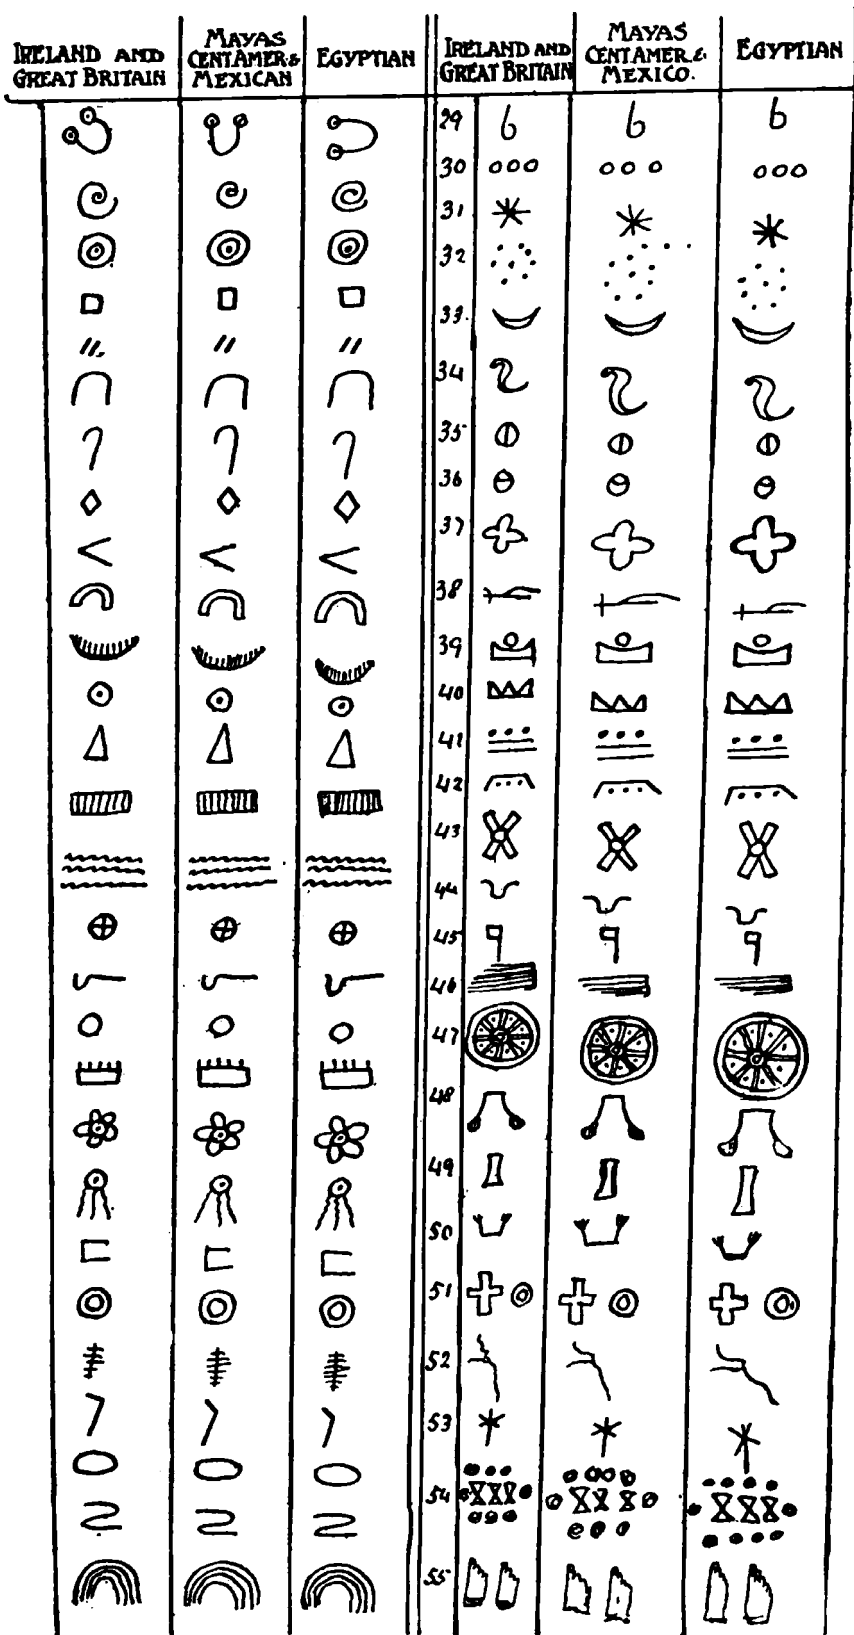 IRELAND AND
GREAT BRITAIN
MAYAS
CENT AMER &
MEXICAN
EGYPTIAN
IRELAND AND
GREAT BRITAIN
MAYAS
CENT AMER. &
MEXICO.
EGYPTIAN
29
30
31
32
33.
34
35
36
37
38
39
40
41
42
43
44
45
46
47
48
49
50
51
52
53
54
55